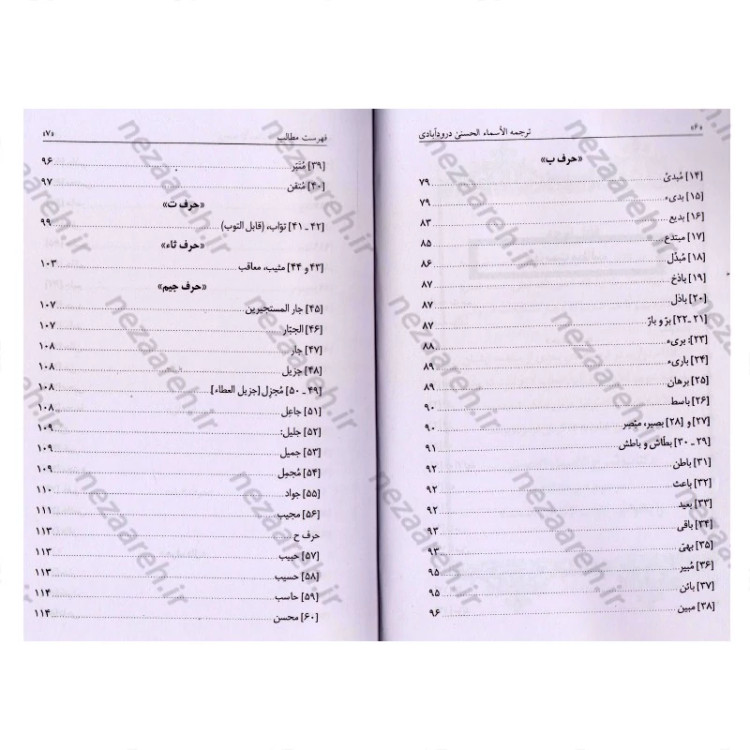 «۶» ترجمه الأسماء الحسنیٰ درودآبادی
«حرف ب»
[۱۴] مُبدئ ۷۹
[۱۵] بدیء ۷۹
[۱۶] بدیع ۸۳
[۱۷] مبتدع ۸۵
[۱۸] مُبدِّل ۸۶
[۱۹] باذخ ۸۷
[۲۰] باذل ۸۷
[۲۱ ـ ۲۲] برّ و بارّ ۸۷
[۲۳]: بریء ۸۸
[۲۴] باریء ۸۹
[۲۵] برهان ۸۹
[۲۶] باسط ۹۰
[۲۷] و [۲۸] بصیر، متصر ۹۰
[۲۹ ـ ۳۰] بطّاش و باطش ۹۱
[۳۱] باطن ۹۲
[۳۲] باعث ۹۲
[۳۳] بعید ۹۲
[۳۴] باقی ۹۳
[۳۵] بهیّ ۹۳
[۳۶] مُبیر ۹۵
[۳۷] بائن ۹۵
[۳۸] مبین ۹۶
فهرست مطالب «۷»
[۳۹] مُتَبِّر ۹۶
[۴۰] مُتقن ۹۷
«حرف ت»
[۴۲ ـ ۴۱] توّاب، (قابل التوب) ۹۹
«حرف ثاء»
[۴۳ و ۴۴] مثیب، معاقب ۱۰۳
«حرف جیم»
[۴۵] جار المستجیرین ۱۰۷
[۴۶] الجبّار ۱۰۷
[۴۷] جار ۱۰۸
[۴۸] جزیل ۱۰۸
[۴۹ ـ ۵۰] مُجزِل [جزیل العطاء] ۱۰۸
[۵۱] جاعِل ۱۰۸
[۵۲] جلیل: ۱۰۹
[۵۳] جمیل ۱۰۹
[۵۴] مُجمِل ۱۰۹
[۵۵] جواد ۱۱۰
[۵۶] مجیب ۱۱۱
حرف ح ۱۱۳
[۵۷] حبیب ۱۱۳
[۵۸] حسیب ۱۱۳
[۵۹] حاسب ۱۱۴
[۶۰] محسن ۱۱۴
nezaareh.ir
nezaareh.ir
nezaareh.ir
nezaareh.ir
nezaareh.ir
nezaareh.ir
nezaareh.ir
nezaareh.ir
nezaareh.ir